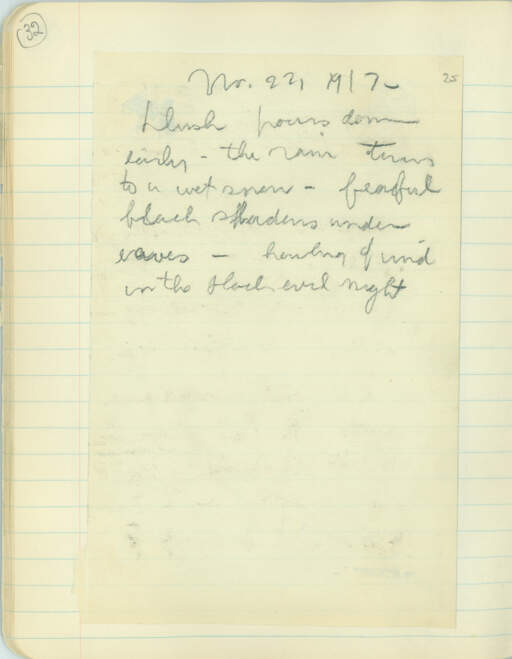 32
25
No. 22, 1917-
Dush pours down
early - the rain turns
to a wet snow - fearful
black shadows under
eaves - howling of wind
in the black evil night